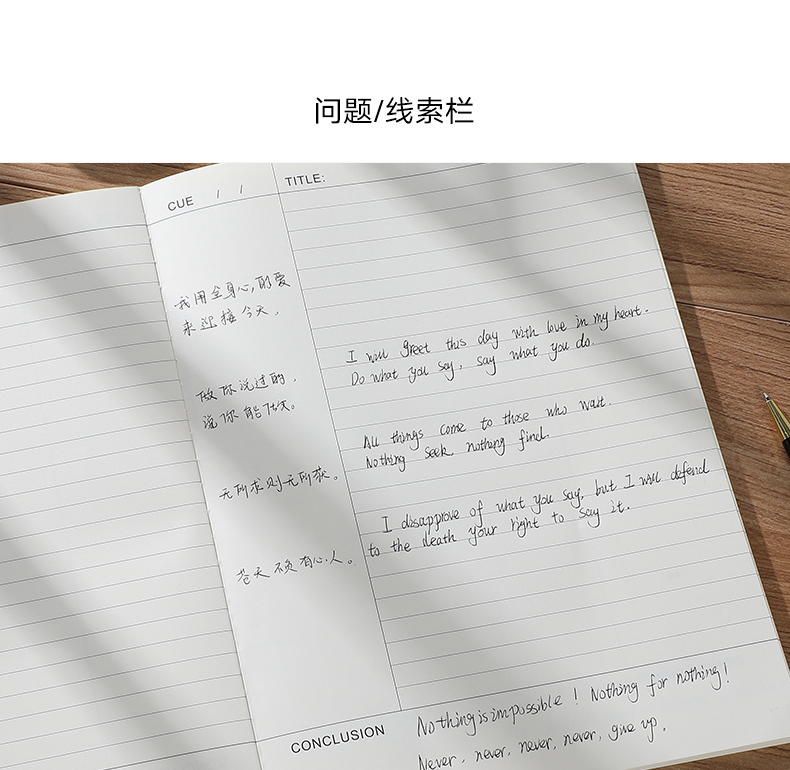 问题/线索栏
CUE / /
TITLE:
我用全身心的爱
来迎接今天.
做你说过的,
说你能做。
无所求则无所获。
苍天不负有心人。
I will greet this day with love in my heart.
Do what you say, say what you do.
All things come to those who wait.
Nothing seek nothing find.
I disapprove of what you say, but I will defend
to the death your right to say it.
CONCLUSION
Nothing is impossible! Nothing for nothing!
Never, never, never, never, give up.